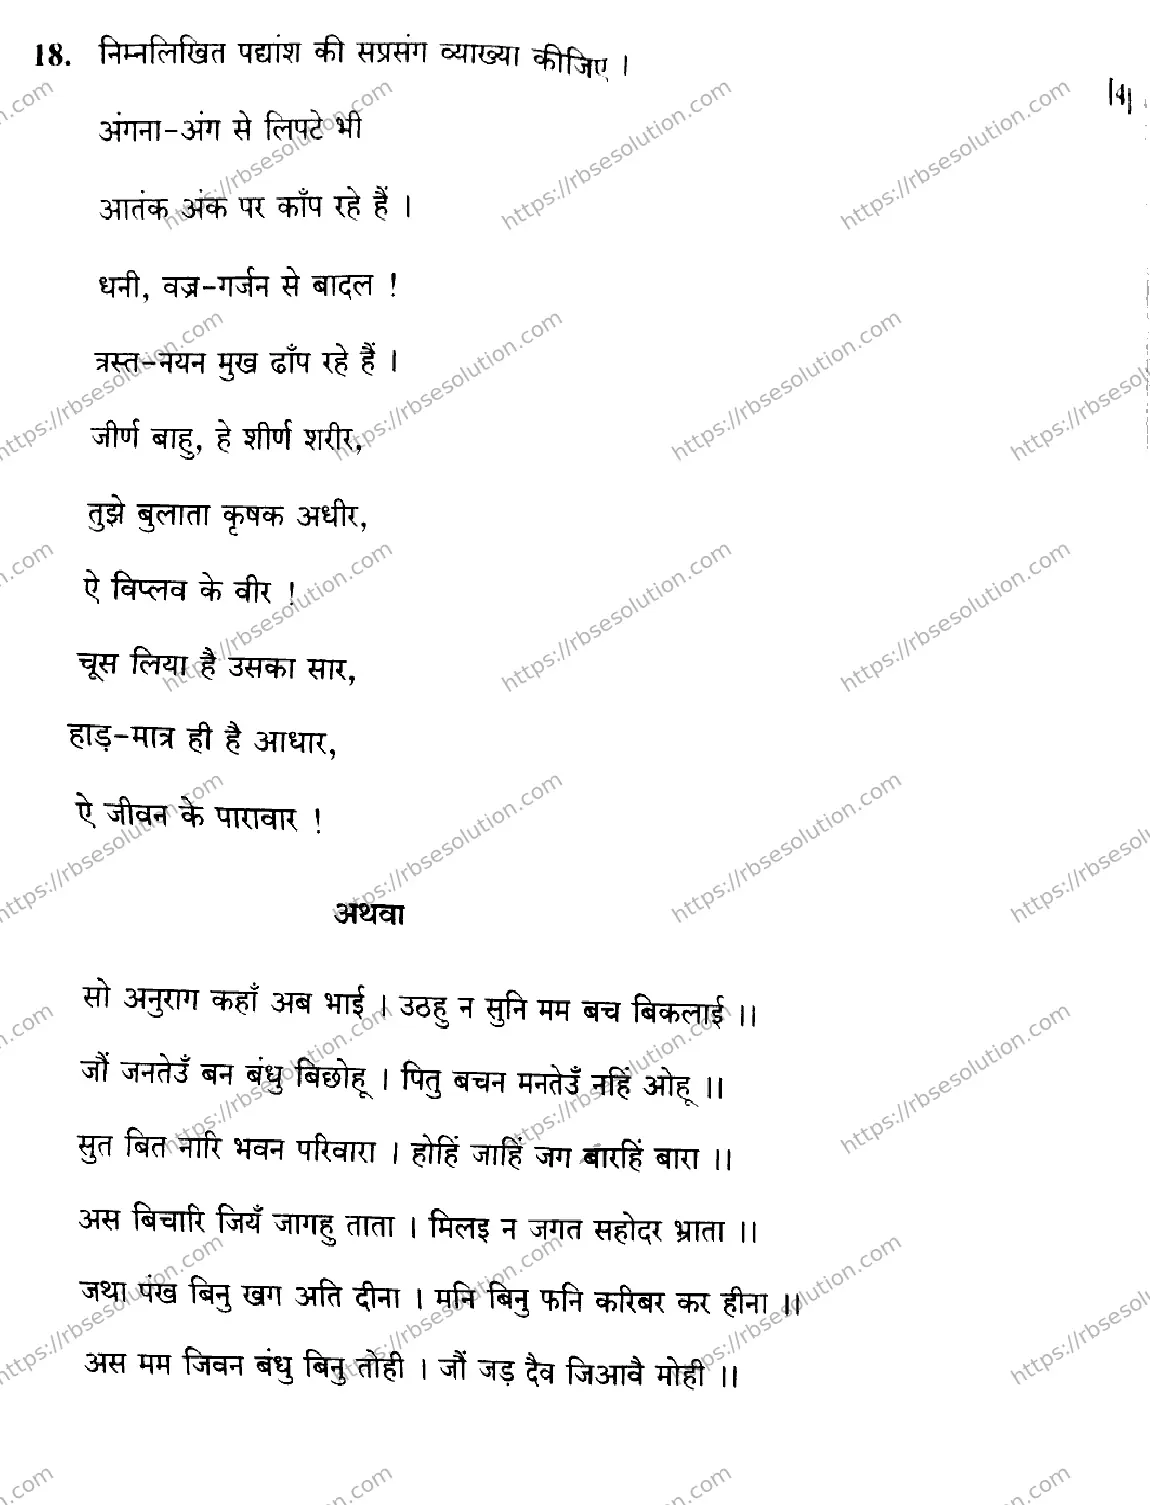 18. निम्नलिखित पद्यांश की सप्रसंग व्याख्या कीजिए ।
[4]
अंगना-अंग से लिपटे भी
आतंक अंक पर काँप रहे हैं ।
धनी, वज्र-गर्जन से बादल !
त्रस्त-नयन मुख ढाँप रहे हैं ।
जीर्ण बाहु, हे शीर्ण शरीर,
तुझे बुलाता कृषक अधीर,
ऐ विप्लव के वीर !
चूस लिया है उसका सार,
हाड़-मात्र ही है आधार,
ऐ जीवन के पारावार !
अथवा
सो अनुराग कहाँ अब भाई । उठहु न सुनि मम बच बिकलाई ।।
जौं जनतेउँ बन बंधु बिछोहू । पितु बचन मनतेउँ नहिं ओहू ।।
सुत बित नारि भवन परिवारा । होहिं जाहिं जग बारहिं बारा ।।
अस बिचारि जियँ जागहु ताता । मिलइ न जगत सहोदर भ्राता ।।
जथा पंख बिनु खग अति दीना । मनि बिनु फनि करिबर कर हीना ।।
अस मम जिवन बंधु बिनु तोही । जौं जड़ दैव जिआवै मोही ।।
https://rbsesolution.com